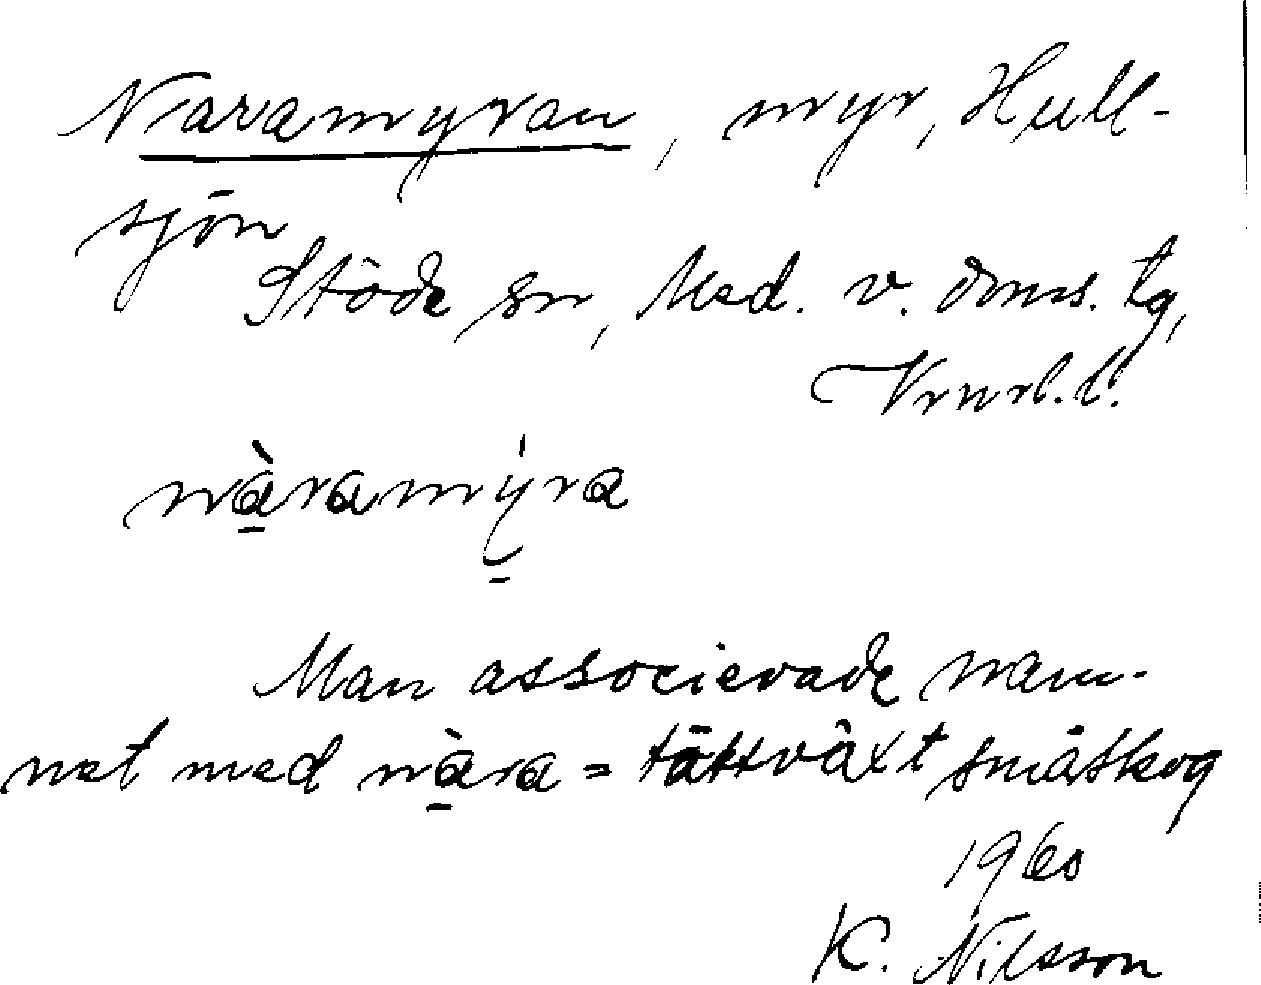 Naramyran, myr, Hull-
sjön
Stöde sn, Med. v. doms. tg,
Vrnrl. l.
nà̱ramý̱ra
Man associerade nam-
net med nà̱ra = tättväxt småskog
1960
K. Nilsson